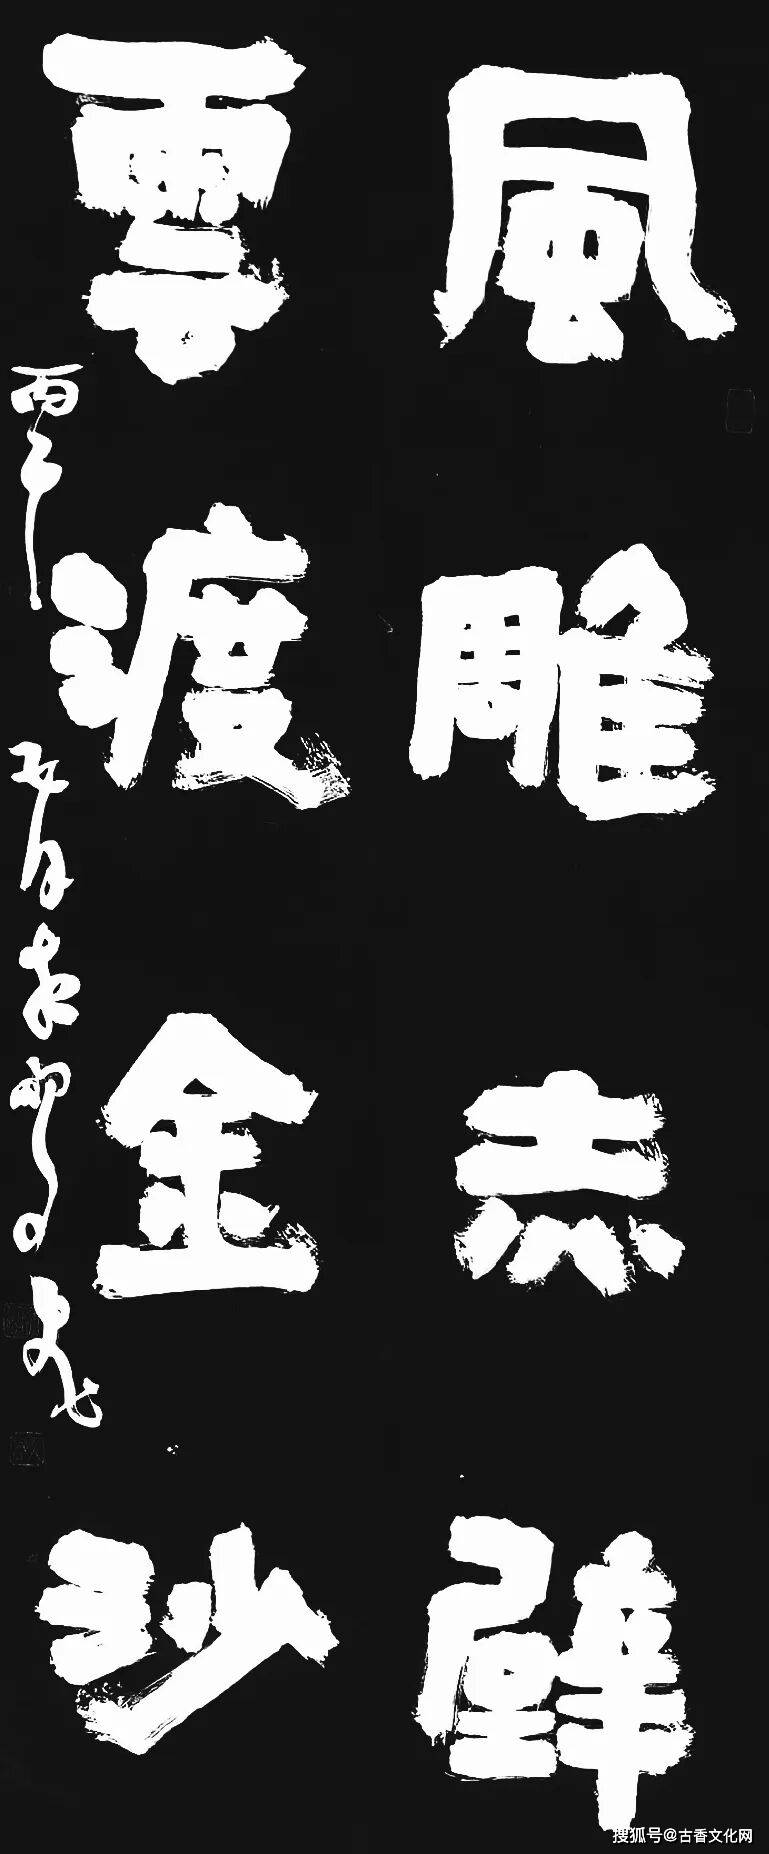 風雕赤壁
雲渡金沙
丙午
搜狐号@古香文化网